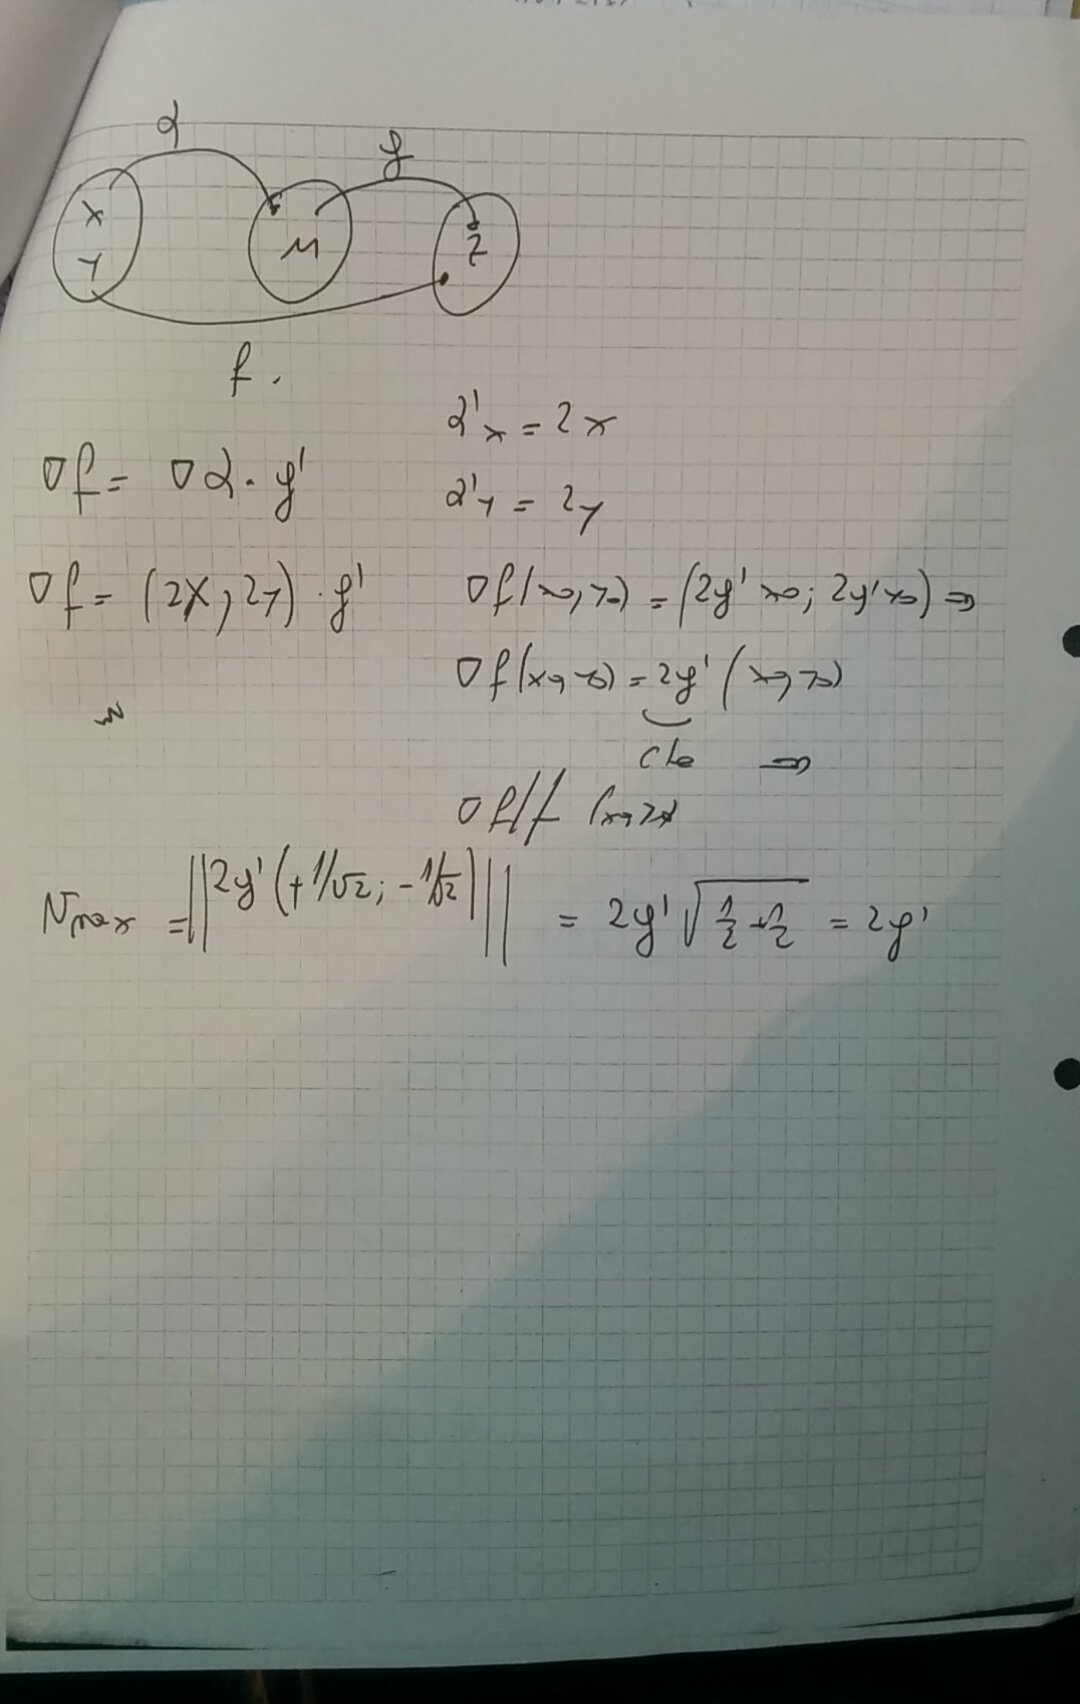 α
g
X
Y
M
Z
f.
α'x = 2x
∇f = ∇α · g'
α'y = 2y
∇f = (2x, 2y) · g'
∇f(x0, y0) = (2g' x0; 2g' y0) ⇒
∇f(x0, y0) = 2g' (x0, y0)
cte ⇒
∇f //
Nmax = ||2g' (+1/√2; -1/√2)|| = 2g' √(1/2 + 1/2) = 2g'